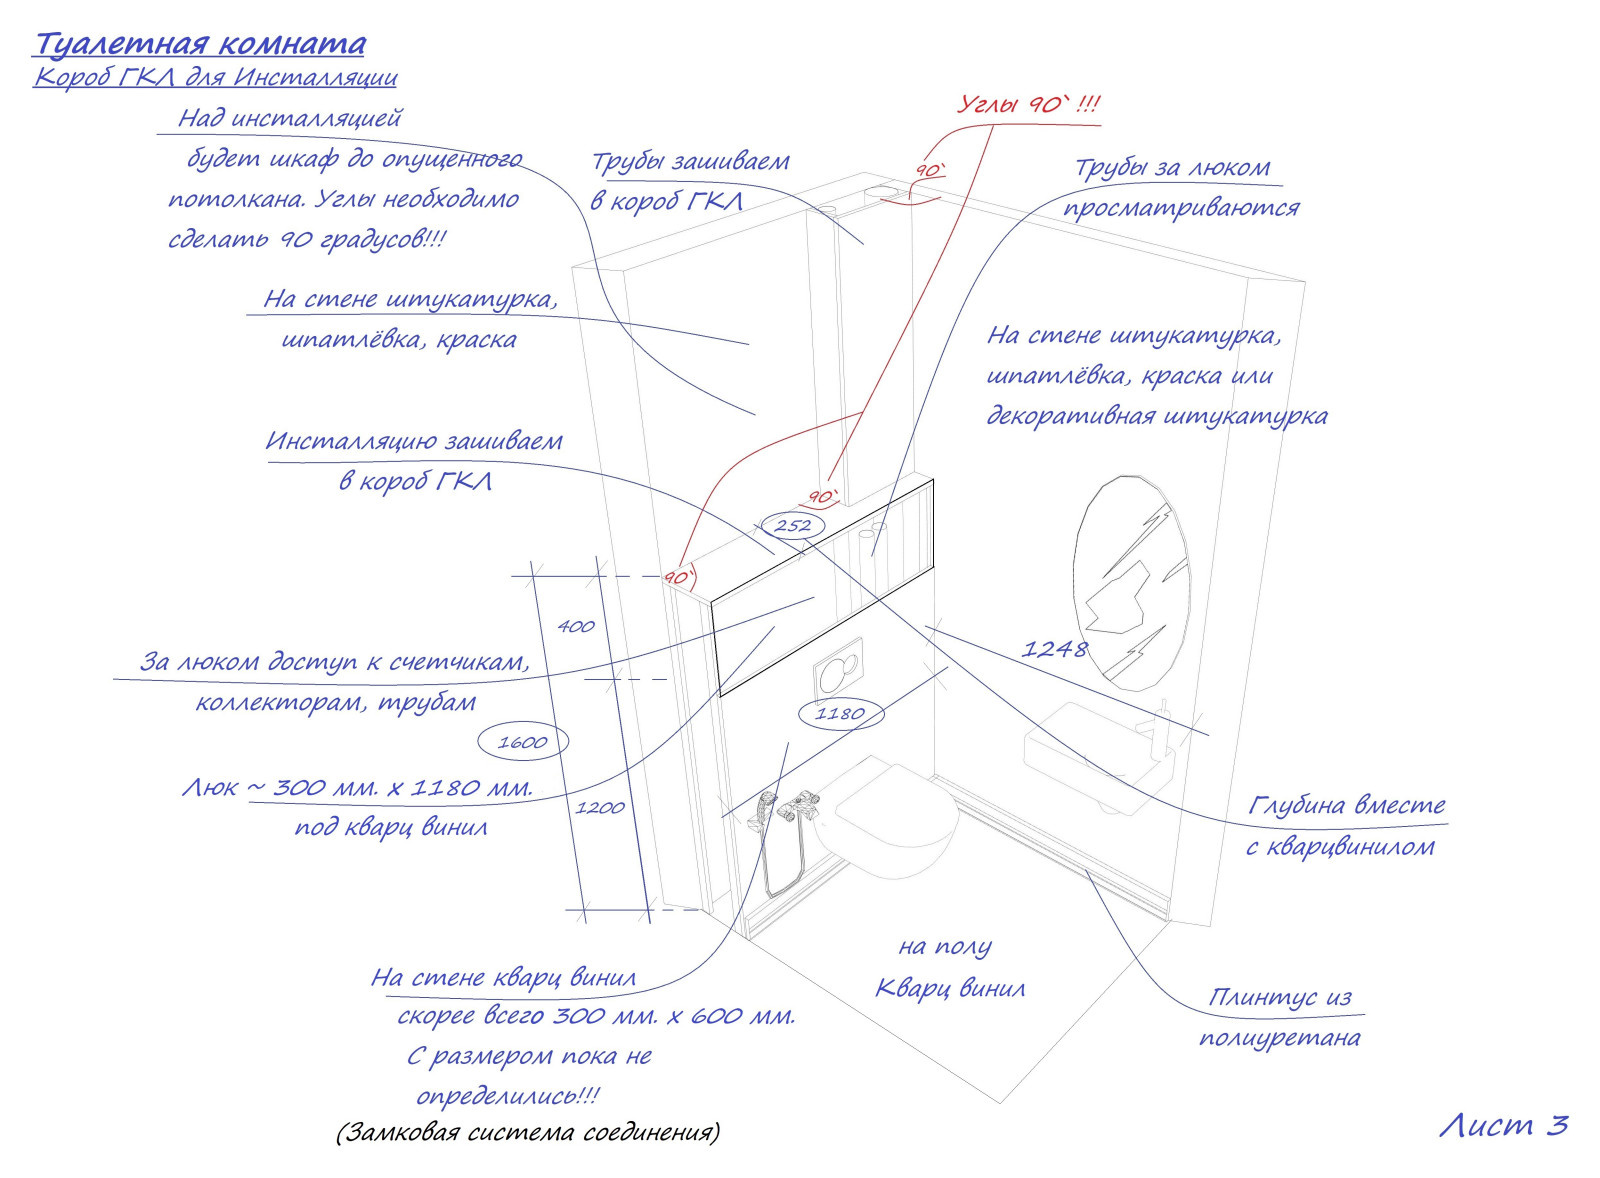 Туалетная комната
Короб ГКЛ для Инсталляции
Над инсталляцией
будет шкаф до опущенного
потолкана. Углы необходимо
сделать 90 градусов!!!
Трубы зашиваем
в короб ГКЛ
Углы 90` !!!
90`
Трубы за люком
просматриваются
На стене штукатурка,
шпатлёвка, краска
На стене штукатурка,
шпатлёвка, краска или
декоративная штукатурка
Инсталляцию зашиваем
в короб ГКЛ
90`
252
90`
400
1248
За люком доступ к счетчикам,
коллекторам, трубам
1180
1600
Люк ~ 300 мм. х 1180 мм.
под кварц винил
1200
Глубина вместе
с кварцвинилом
на полу
Кварц винил
На стене кварц винил
скорее всего 300 мм. х 600 мм.
С размером пока не
определились!!!
(Замковая система соединения)
Плинтус из
полиуретана
Лист 3